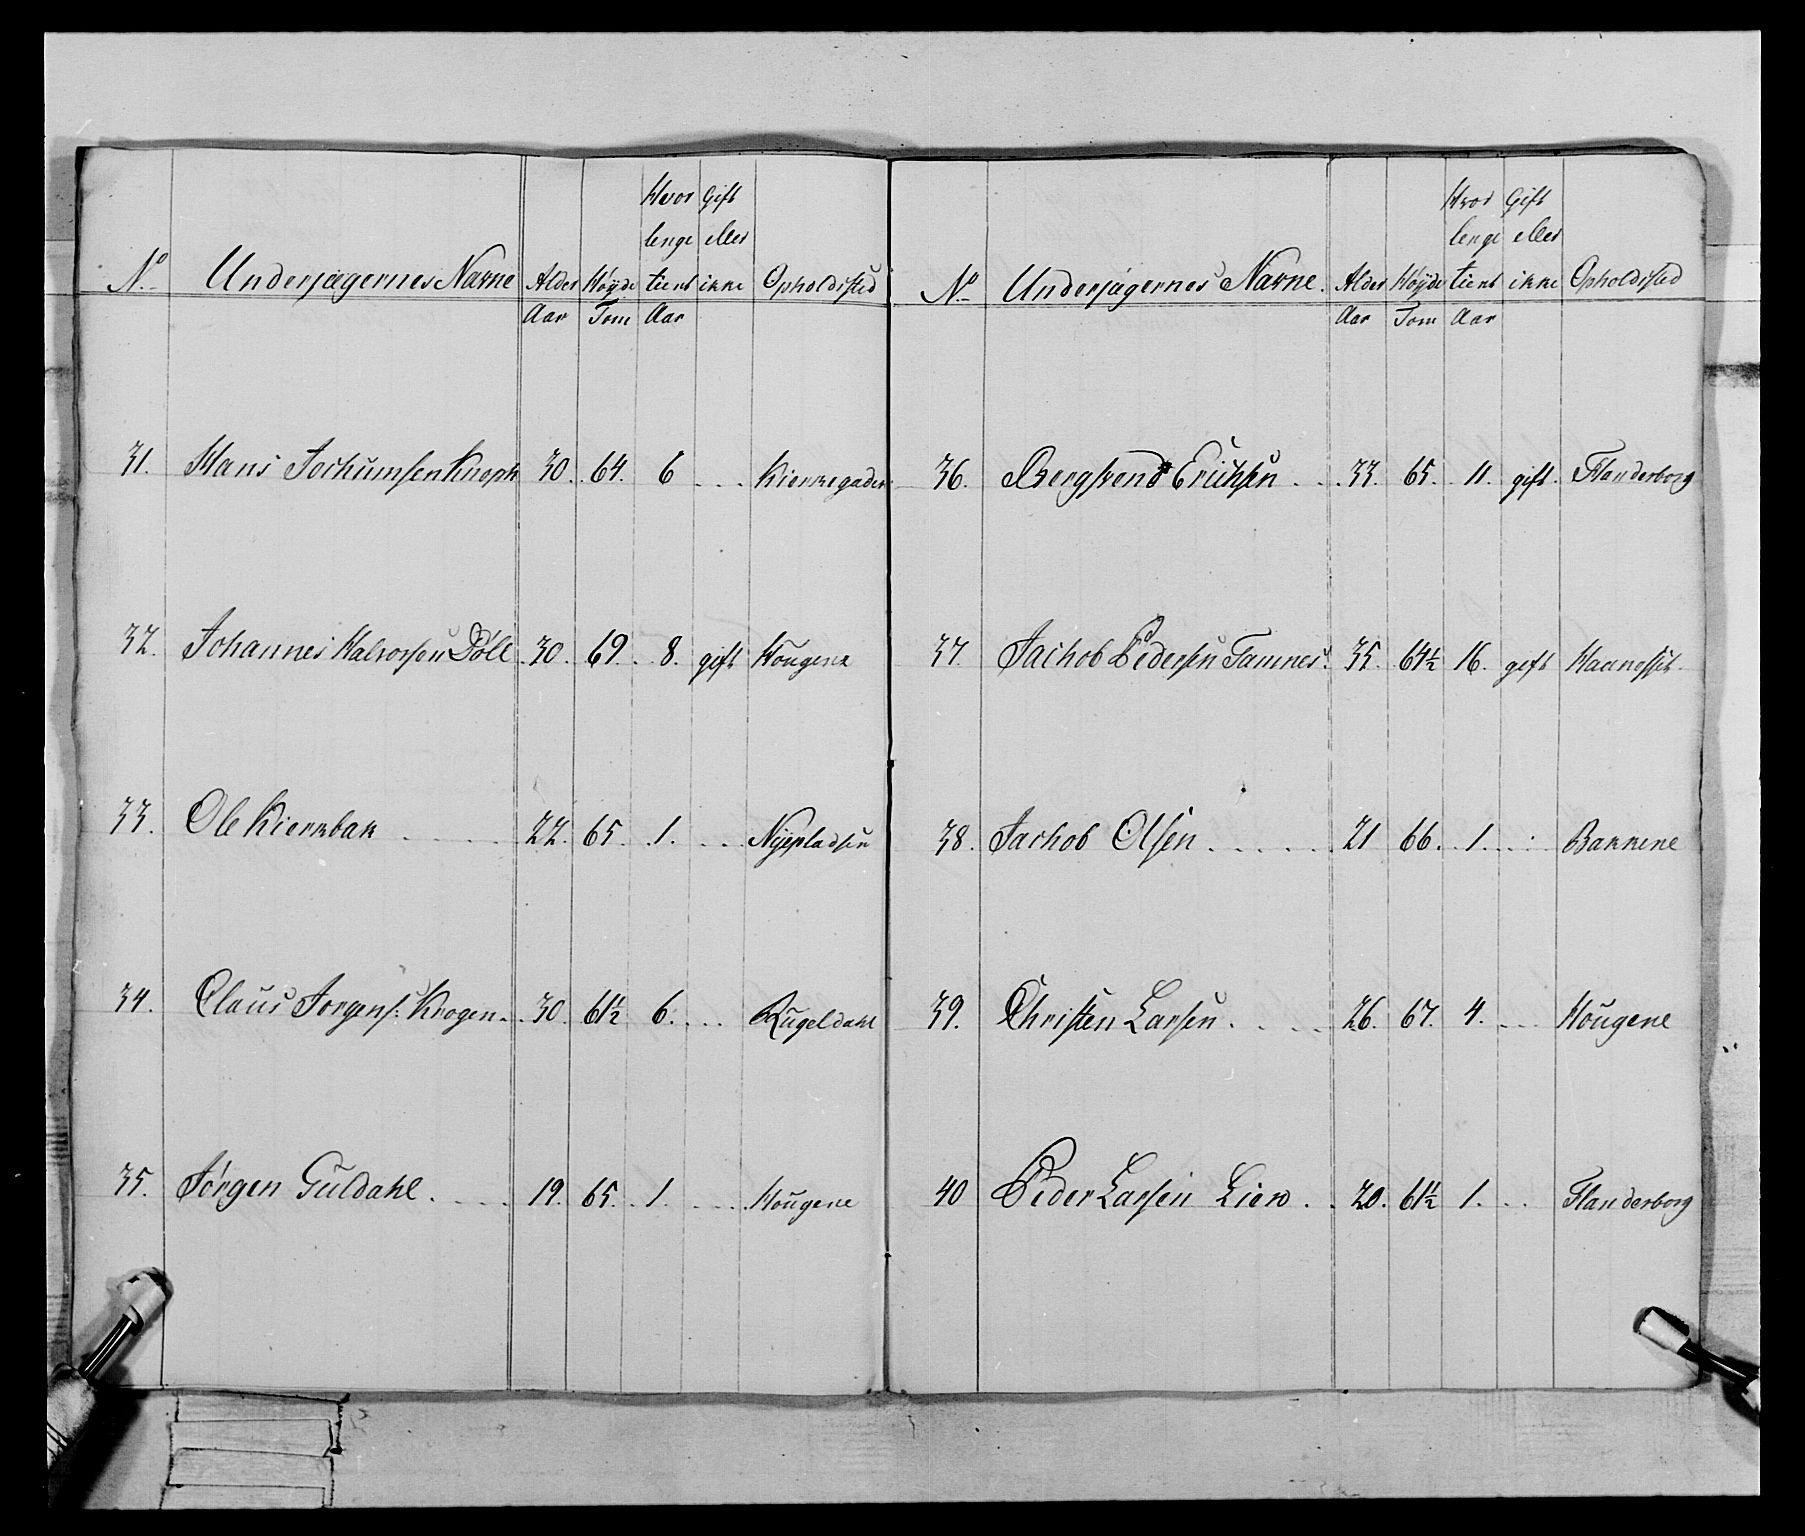 Hvor Gift
lenge eller
No Underjægernes Navne Alder Høyde tient ikke Opholdsted
Aar Tom Aar
31. Hans Jochumsen Knoph 30. 64. 6 . . . Kierkegaden
32. Johannes Halvorsen Döll 30. 69. 8. gift Hougene
33. Ole Kierkbak . . . . . 22. 65. 1. . . . Nyepladsen
34. Claus Jorgens: Krogen . . 30. 61½ 6. . . . Rugeldahl
35. Jörgen Guldahl . . . . 19. 65. 1. . . . Hougene
Hvor Gift
lenge eller
No Underjægernes Navne. Alder Høyde tient ikke Opholdsted
Aar Tom Aar
36. Bergsvend Erichsen . . . 33. 65. 11. gift. Flanderborg
37. Jachob Pedersen Tamnes. 35. 64½ 16. gift
38. Jachob Olsen . . . . . 21 66. 1. . . . Bakkene
39. Christen Larsen . . . . 26. 67. 4. . . . Hougene
40 Peder Larsen Lien . . 20. 61½ 1. . . Flanderborg